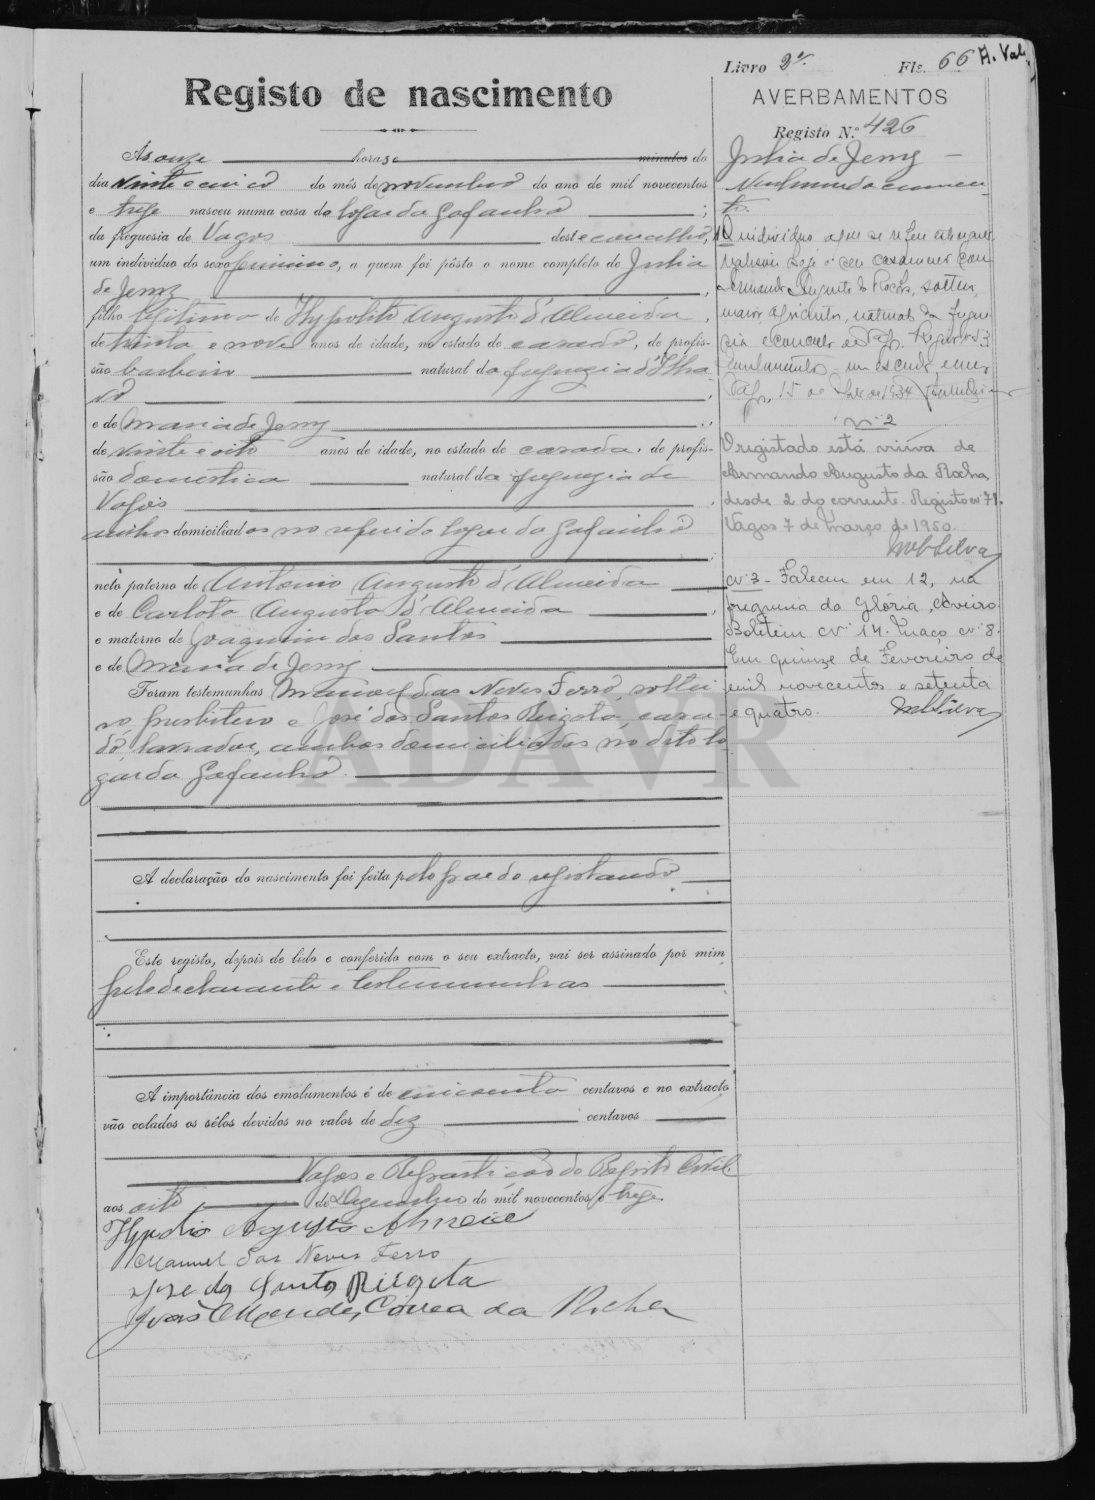 Livro 2º Fls. 66 A. Val.
Registo de nascimento
AVERBAMENTOS
Registo N.º 426
Ás onze horas e minutos do
dia vinte e cinco do mês de novembro do ano de mil novecentos
e treze nasceu numa casa do logar da Gafanha ;
da freguesia de Vagos deste concelho,
um individuo do sexo feminino, a quem foi pôsto o nome completo de Julia
de Jesus ,
filho legitimo de Hypolito Augusto d'Almeida ,
de trinta e nove anos de idade, no estado de casado, de profis-
são barbeiro natural da freguezia d'Ilha-
vo ,
e de Maria de Jesus ,
de vinte e oito anos de idade, no estado de casada, de profis-
são domestica natural da freguezia de
Vagos ,
ambos domiciliados no referido logar da Gafanha
;
neto paterno de Antonio Augusto d'Almeida
e de Carlota Augusta d'Almeida ,
e materno de Joaquim dos Santos
e de Maria de Jesus
Foram testemunhas Manoel das Neves Ferro, soltei-
ro, presbitero e José dos Santos Bizgota, casa-
do, lavrador, ambos domiciliados no dito lo-
gar da Gafanha.
A declaração do nascimento foi feita pelo pae do registando
Este registo, depois de lido e conferido com o seu extracto, vai ser assinado por mim
pelo declarante e testemunhas
A importância dos emolumentos é de cincoenta centavos e no extracto
vão colados os sêlos devidos no valor de dez centavos
Vagos e Repartição do Registo Civil
aos oito de Dezembro de mil novecentos e treze.
Manuel das Neves Ferro
João Mendes Correa da Rocha
Julia de Jesus
Nenhum documen-
to.
O individuo a que se refere este
hoje o seu casamento com
Armando Augusto da Rocha, solteiro,
maior, agricultor, natural da fregue-
sia e concelho de Registo nº 3
1934
Nº 2
O registado está viúva de
Armando Augusto da Rocha,
desde 2 do corrente. Registo nº 71.
Vagos 7 de Março de 1950.
Nº 3 - Faleceu em 12, na
freguesia da Glória, Aveiro.
Boletim Nº 14. Maço Nº 8.
Em quinze de Fevereiro de
mil novecentos e setenta
e quatro.
ADAVR